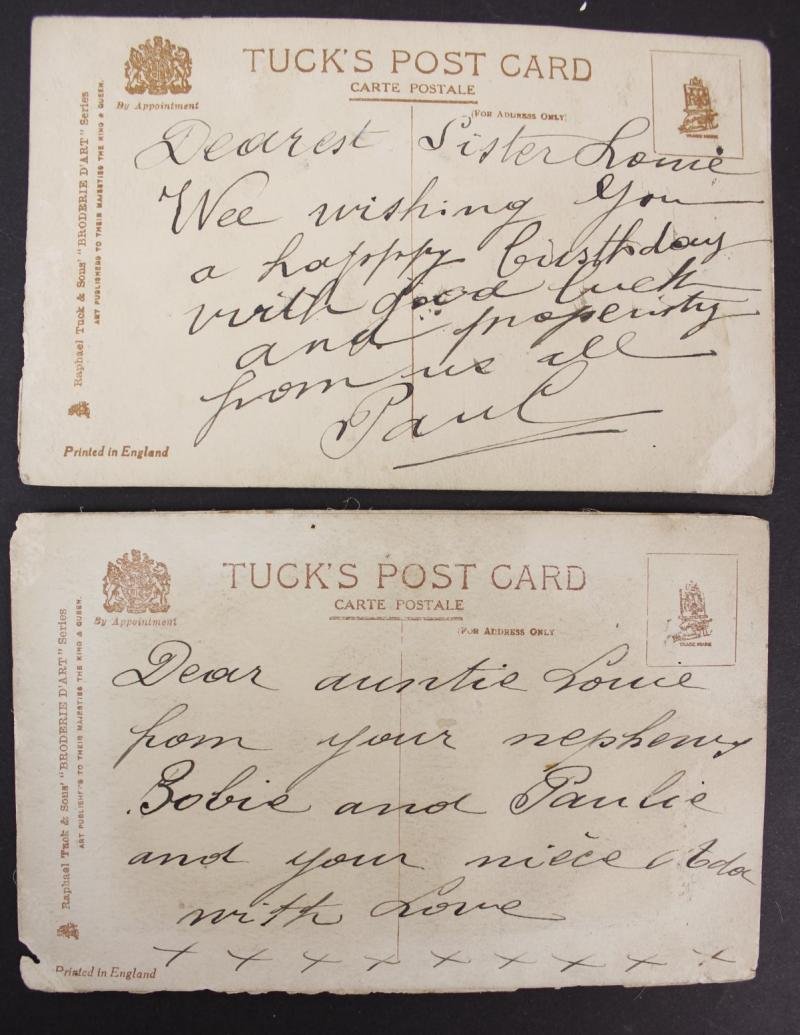 TUCK'S POST CARD
CARTE POSTALE
By Appointment
(FOR ADDRESS ONLY)
TRADE MARK
Raphael Tuck & Sons' "BRODERIE D'ART" Series
ART PUBLISHERS TO THEIR MAJESTIES THE KING & QUEEN.
Dearest Sister Louie
Wee wishing you
a happpy birsthday
with good luck
and properisty
from us all
Paul
Printed in England
TUCK'S POST CARD
CARTE POSTALE
By Appointment
(FOR ADDRESS ONLY
TRADE MARK
Raphael Tuck & Sons' "BRODERIE D'ART" Series
ART PUBLISHERS TO THEIR MAJESTIES THE KING & QUEEN.
Dear auntie Louie
from your nephews
Bobie and Paulie
and your nièce Ada
with Love
x x x x x x x x x
Printed in England